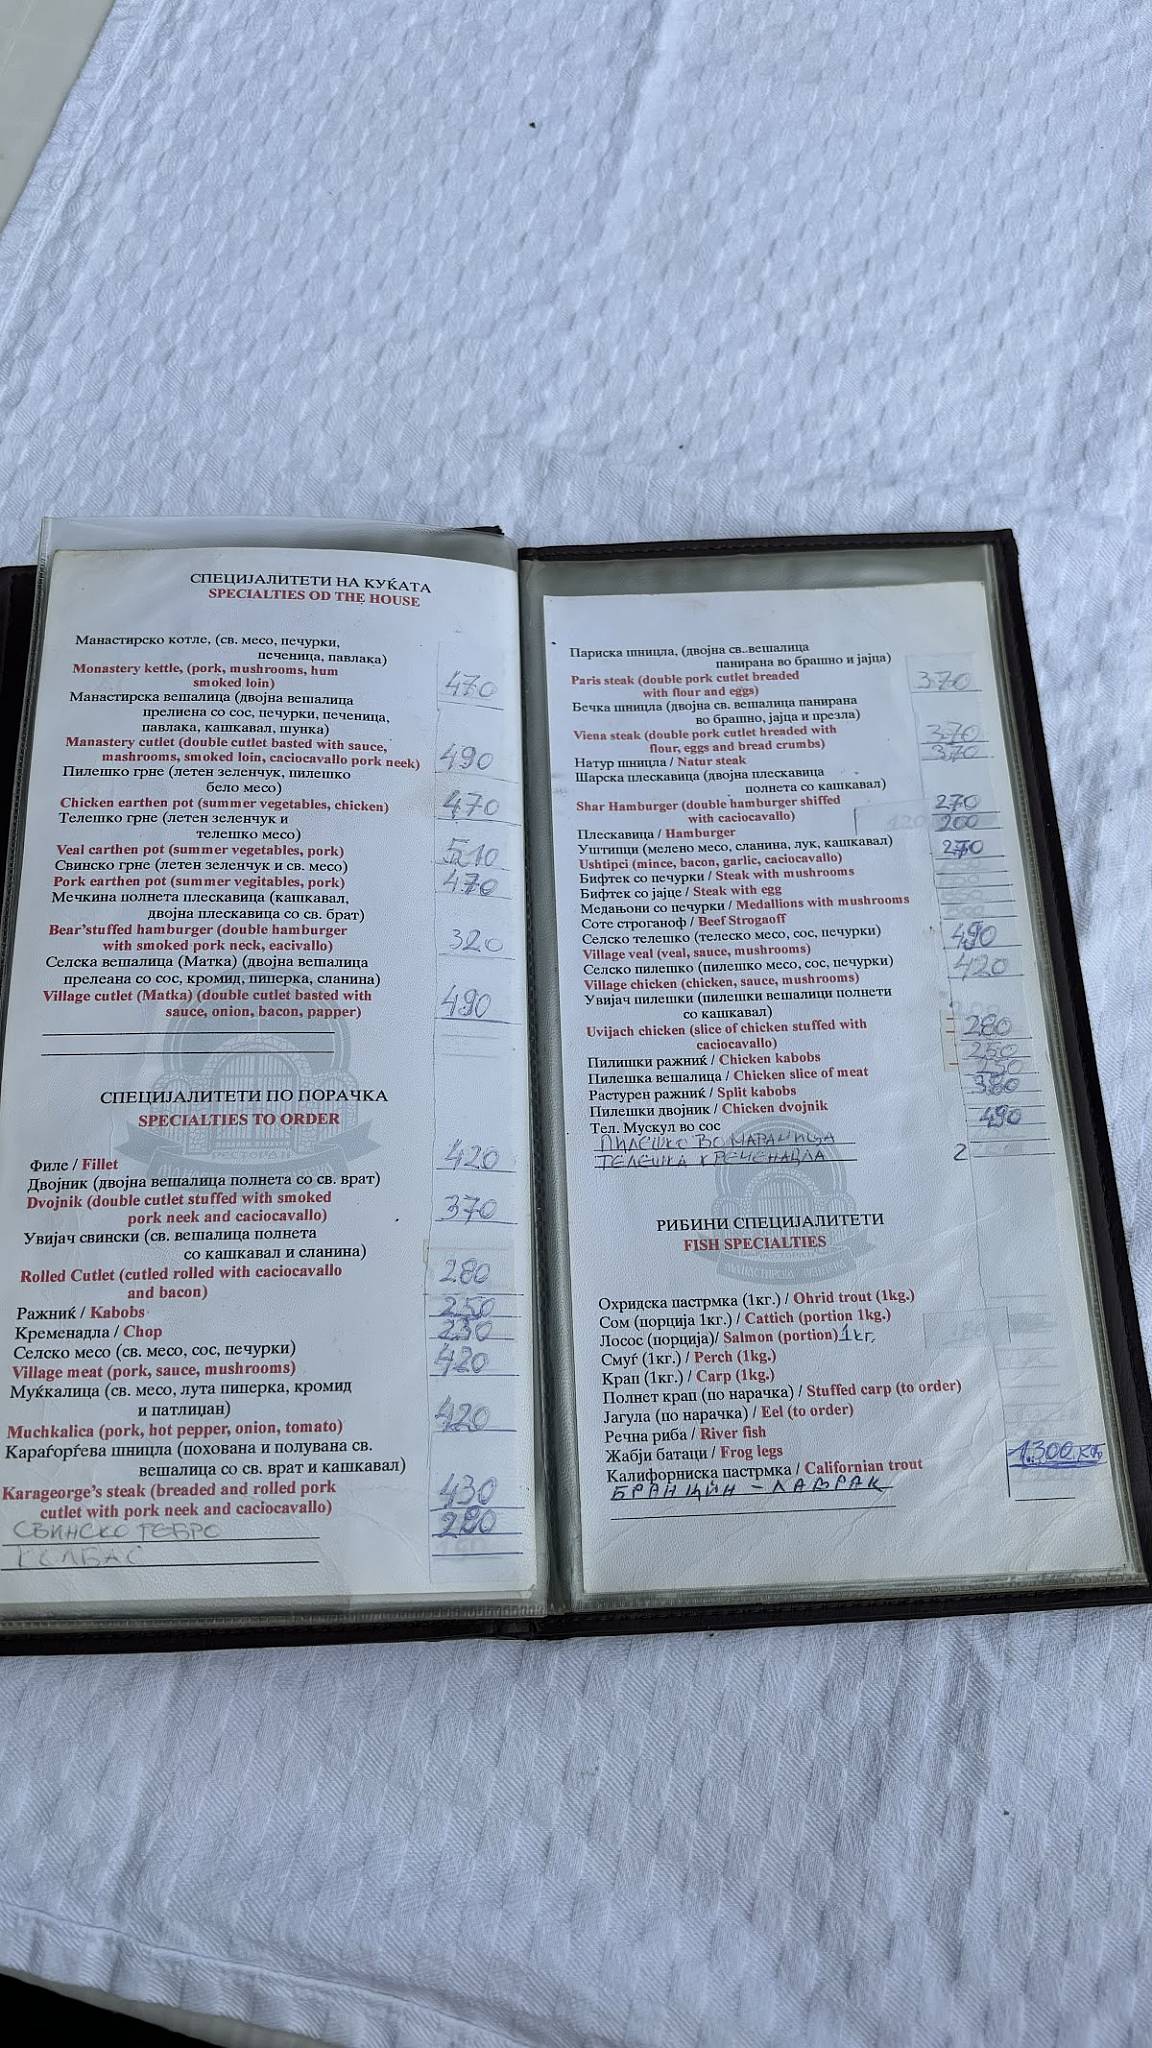 СПЕЦИЈАЛИТЕТИ НА КУЌАТА
SPECIALTIES OD THE HOUSE
Манастирско котле, (св. месо, печурки,
печеница, павлака)
Monastery kettle, (pork, mushrooms, hum
smoked loin) 470
Манастирска вешалица (двојна вешалица
прелиена со сос, печурки, печеница,
павлака, кашкавал, шунка)
Manastery cutlet (double cutlet basted with sauce,
mashrooms, smoked loin, caciocavallo pork neek) 490
Пилешко грне (летен зеленчук, пилешко
бело месо)
Chicken earthen pot (summer vegetables, chicken) 470
Телешко грне (летен зеленчук и
телешко месо)
Veal earthen pot (summer vegetables, pork) 510
Свинско грне (летен зеленчук и св. месо)
Pork earthen pot (summer vegitables, pork) 470
Мечкина полнета плескавица (кашкавал,
двојна плескавица со св. брат)
Bear'stuffed hamburger (double hamburger
with smoked pork neck, eacivallo) 320
Селска вешалица (Матка) (двојна вешалица
прелеана со сос, кромид, пиперка, сланина)
Village cutlet (Matka) (double cutlet basted with
sauce, onion, bacon, papper) 490
СПЕЦИЈАЛИТЕТИ ПО ПОРАЧКА
SPECIALTIES TO ORDER
РЕСТОРАН
Филе / Fillet 420
Двојник (двојна вешалица полнета со св. врат)
Dvojnik (double cutlet stuffed with smoked
pork neek and caciocavallo) 370
Увијач свински (св. вешалица полнета
со кашкавал и сланина)
Rolled Cutlet (cutled rolled with caciocavallo
and bacon) 280
Ражниќ / Kabobs 250
Кременадла / Chop 230
Селско месо (св. месо, сос, печурки)
Village meat (pork, sauce, mushrooms) 420
Муќкалица (св. месо, лута пиперка, кромид
и патлиџан)
Muchkalica (pork, hot pepper, onion, tomato) 420
Караѓорѓева шницла (похована и полувана св.
вешалица со св. врат и кашкавал)
Karageorge's steak (breaded and rolled pork
cutlet with pork neek and caciocavallo) 430
СВИНСКО РЕБРО 280
Париска шницла, (двојна св..вешалица
панирана во брашно и јајца)
Paris steak (double pork cutlet breaded
with flour and eggs) 370
Бечка шницла (двојна св. вешалица панирана
во брашно, јајца и презла)
Viena steak (double pork cutlet hreaded with
flour, eggs and bread crumbs) 370
Натур шницла / Natur steak 370
Шарска плескавица (двојна плескавица
полнета со кашкавал)
Shar Hamburger (double hamburger shiffed
with caciocavallo) 270
Плескавица / Hamburger 200
Уштипци (мелено месо, сланина, лук, кашкавал)
Ushtipci (mince, bacon, garlic, caciocavallo)
Бифтек со печурки / Steak with mushrooms
Бифтек со јајце / Steak with egg
Медањони со печурки / Medallions with mushrooms
Соте строганоф / Beef Strogaoff
Селско телешко (телеско месо, сос, печурки)
Village veal (veal, sauce, mushrooms) 490
Селско пилешко (пилешко месо, сос, печурки)
Village chicken (chicken, sauce, mushrooms) 420
Увијач пилешки (пилешки вешалици полнети
со кашкавал)
Uvijach chicken (slice of chicken stuffed with
caciocavallo) 280
Пилишки ражниќ / Chicken kabobs 250
Пилешка вешалица / Chicken slice of meat
Растурен ражниќ / Split kabobs
Пилешки двојник / Chicken dvojnik
Тел. Мускул во сос 490
ПИЛЕШКО ВО МАРАМИЦА
ТЕЛЕШКА КРЕМЕНАДЛА 2
РИБИНИ СПЕЦИЈАЛИТЕТИ
FISH SPECIALTIES
Охридска пастрмка (1кг.) / Ohrid trout (1kg.)
Сом (порција 1кг.) / Cattich (portion 1kg.)
Лосос (порција)/ Salmon (portion) 1кг.
Смуѓ (1кг.) / Perch (1kg.)
Крап (1кг.) / Carp (1kg.)
Полнет крап (по нарачка) / Stuffed carp (to order)
Јагула (по нарачка) / Eel (to order)
Речна риба / River fish
Жабји батаци / Frog legs
Калифорниска пастрмка / Californian trout
БРАНЦИН - ЛАВРАК 1300 кг